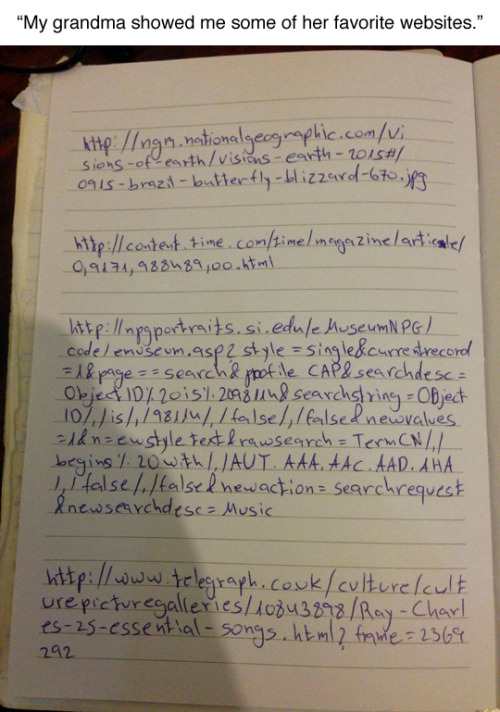 “My grandma showed me some of her favorite websites.”
http://ngm.nationalgeographic.com/vi
sions-of-earth/visions-earth-2015#/
0915-brazil-butterfly-blizzard-670.jpg
http://content.time.com/time/magazine/article/
0,9171,988489,00.html
http://npgportraits.si.edu/eMuseumNPG/
code/emuseum.asp? style=single&currentrecord
=1&page==search& profile CAP&searchdesc=
Object ID%20is%2098114&searchstring=OBject
ID/,/is/,/98114/,/false/,/false&newvalues
=1&n=ewstyle text&rawsearch=TermCN/,/
begins%20with/,/AUT.AAA.AAC.AAD.AHA
/,/false/,/false&newaction=searchrequest
&newsearchdesc=Music
http://www.telegraph.co.uk/culture/cult
urepicturegalleries/10843898/Ray-Charl
es-25-essential-songs.html? frame=2369
292